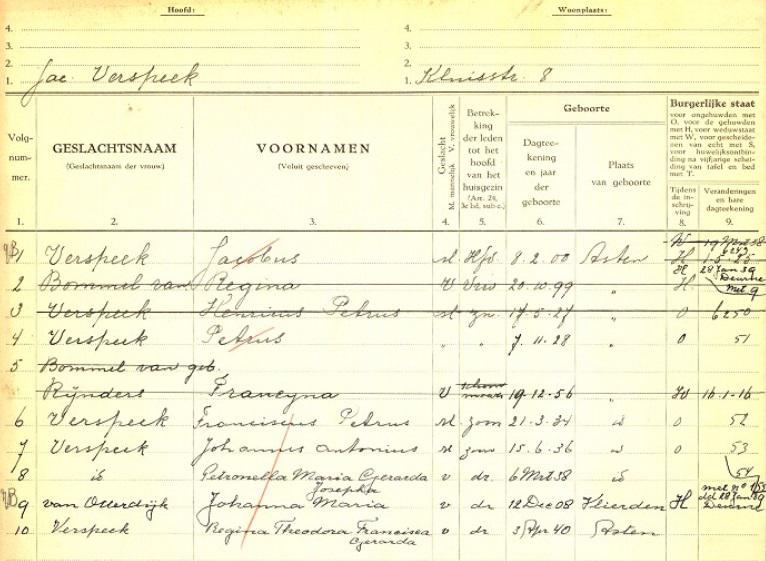 Hoofd:
Woonplaats:
4. 4.
3. 3.
2. 2.
1. Jac Verspeek 1. Kluisstr. 8
Volgnummer.
GESLACHTSNAAM
(Geslachtsnaam der vrouw.)
VOORNAMEN
(Voluit geschreven)
Geslacht
M. mannelijk V. vrouwelijk
Betrekking der leden tot het hoofd van het huisgezin
(Art. 24, 3e lid, sub c.)
Geboorte
Dagteekening en jaar der geboorte
Plaats van geboorte
Burgerlijke staat
voor ongehuwden met
O, voor de gehuwden
met H, voor weduwstaat
met W, voor gescheidenen
van echt met S,
voor huwelijksontbinding
na vijfjarige scheiding
van tafel en bed
met T.
Tijdens de inschrijving
Veranderingen en hare dagteekening
1. 2. 3. 4. 5. 6. 7. 8. 9.
1 Verspeek Jacobus M Hfd 8.2.00 Asten H
28 Jan 39
Deurne
2 Bommel van Regina V Vrw 20.10.99 " H met 9
3 Verspeek Henricus Petrus M zn. 17.5.27 " O 6250
4 Verspeek Petrus " " 7.11.28 " O 51
5 Bommel van geb.
Rijnders Francyna V 19.12.56 " W 16.1.16
6 Verspeek Franciscus Petrus M zoon 21.3.34 id O 52
7 Verspeek Johannes Antonius M zoon 15.6.36 id O 53
8 id Petronella Maria Gerarda v dr. 6 Mrt 38 id 54
Josepha
9 van Otterdijk Johanna Maria v dr 12 Dec 08 Vlierden H
dd 28 Jan 39
Deurne
10 Verspeek Regina Theodora Francisca v dr 3 Apr 40 Asten
Gerarda